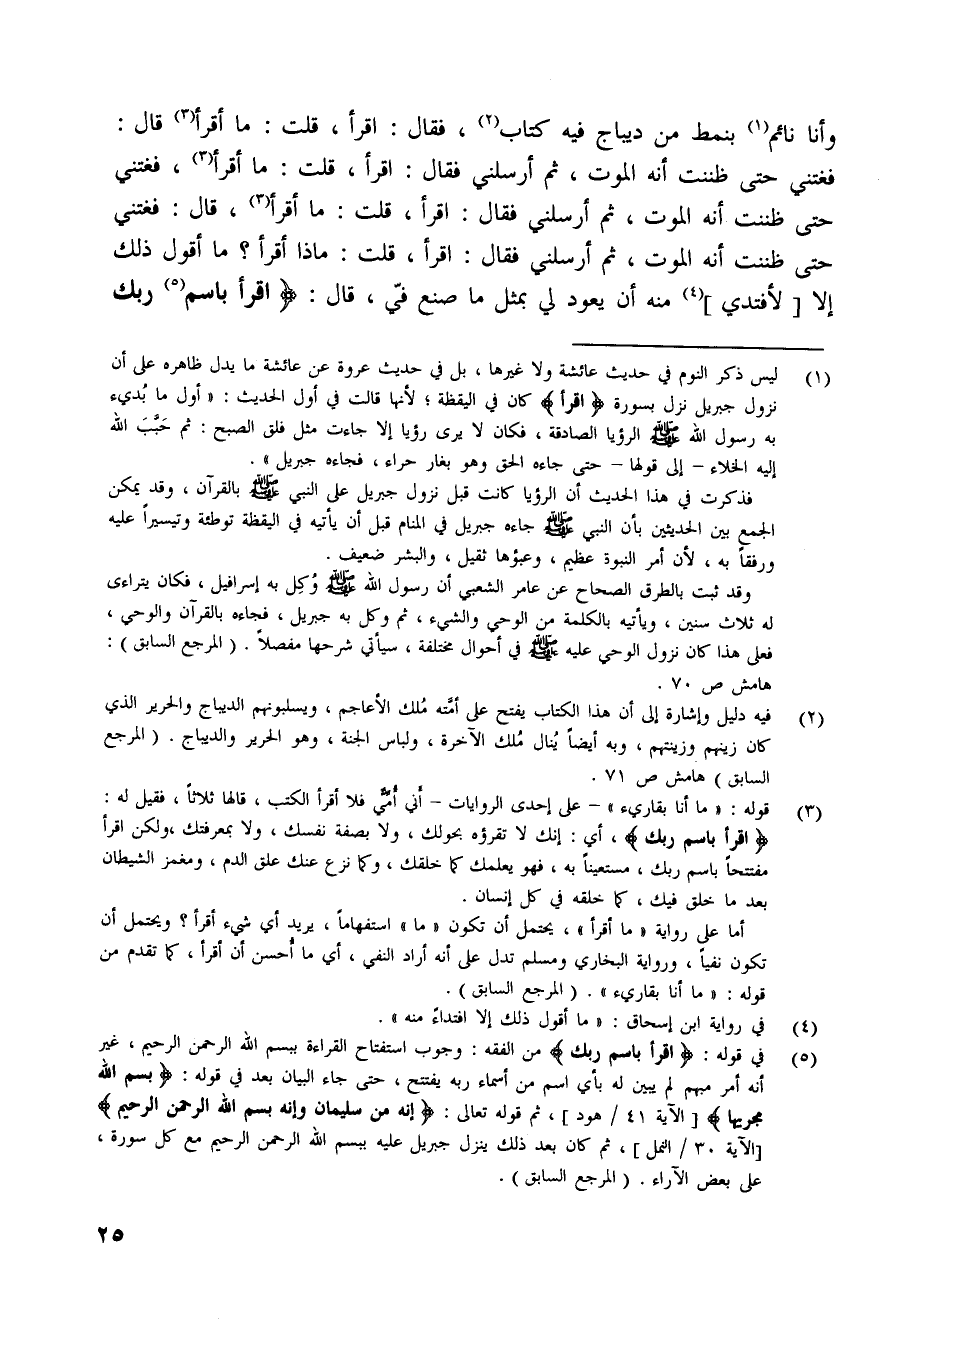 وأنا نائم(١) بنمط من ديباج فيه كتاب(٢) ، فقال : اقرأ ، قلت : ما أقرأ(٣) قال :
فغتني حتى ظننت أنه الموت ، ثم أرسلني فقال : اقرأ ، قلت : ما أقرأ(٣) ، فغتني
حتى ظننت أنه الموت ، ثم أرسلني فقال : اقرأ ، قلت : ما أقرأ(٣) ، قال : فغتني
حتى ظننت أنه الموت ، ثم أرسلني فقال : اقرأ ، قلت : ماذا أقرأ ؟ ما أقول ذلك
إلا [ لأفتدي ](٤) منه أن يعود لي بمثل ما صنع فيّ ، قال : ﴿ اقرأ باسم(٥) ربك
(١) ليس ذكر النوم في حديث عائشة ولا غيرها ، بل في حديث عروة عن عائشة ما يدل ظاهره على أن
نزول جبريل نزل بسورة ﴿ اقرأ ﴾ كان في اليقظة ؛ لأنها قالت في أول الحديث : « أول ما بُديء
به رسول الله ﷺ الرؤيا الصادقة ، فكان لا يرى رؤيا إلا جاءت مثل فلق الصبح : ثم حَبَّبَ الله
إليه الخلاء - إلى قولها - حتى جاءه الحق وهو بغار حراء ، فجاءه جبريل » .
فذكرت في هذا الحديث أن الرؤيا كانت قبل نزول جبريل على النبي ﷺ بالقرآن ، وقد يمكن
الجمع بين الحديثين بأن النبي ﷺ جاءه جبريل في المنام قبل أن يأتيه في اليقظة توطئة وتيسيراً عليه
ورفقاً به ، لأن أمر النبوة عظيم ، وعبؤها ثقيل ، والبشر ضعيف .
وقد ثبت بالطرق الصحاح عن عامر الشعبي أن رسول الله ﷺ وُكِل به إسرافيل ، فكان يتراءى
له ثلاث سنين ، ويأتيه بالكلمة من الوحي والشيء ، ثم وكل به جبريل ، فجاءه بالقرآن والوحي ،
فعلى هذا كان نزول الوحي عليه ﷺ في أحوال مختلفة ، سيأتي شرحها مفصلاً . ( المرجع السابق ) :
هامش ص ٧٠ .
(٢) فيه دليل وإشارة إلى أن هذا الكتاب يفتح على أمَّته مُلك الأعاجم ، ويسلبونهم الديباج والحرير الذي
كان زينهم وزينتهم ، وبه أيضاً يُنال مُلك الآخرة ، ولباس الجنة ، وهو الحرير والديباج . ( المرجع
السابق ) هامش ص ٧١ .
(٣) قوله : « ما أنا بقاريء » - على إحدى الروايات - أني أُمِّيّ فلا أقرأ الكتب ، قالها ثلاثاً ، فقيل له :
﴿ اقرأ باسم ربك ﴾ ، أي : إنك لا تقرؤه بحولك ، ولا بصفة نفسك ، ولا بمعرفتك ،ولكن اقرأ
مفتتحاً باسم ربك ، مستعيناً به ، فهو يعلمك كما خلقك ، وكما نزع عنك علق الدم ، ومغمز الشيطان
بعد ما خلق فيك ، كما خلقه في كل إنسان .
أما على رواية « ما أقرأ » ، يحتمل أن تكون « ما » استفهاماً ، يريد أي شيء أقرأ ؟ ويحتمل أن
تكون نفياً ، ورواية البخاري ومسلم تدل على أنه أراد النفي ، أي ما أُحسن أن أقرأ ، كما تقدم من
قوله : « ما أنا بقاريء » . ( المرجع السابق ) .
(٤) في رواية ابن إسحاق : « ما أقول ذلك إلا افتداءً منه » .
(٥) في قوله : ﴿ اقرأ باسم ربك ﴾ من الفقه : وجوب استفتاح القراءة ببسم الله الرحمن الرحيم ، غير
أنه أمر مبهم لم يبين له بأي اسم من أسماء ربه يفتتح ، حتى جاء البيان بعد في قوله : ﴿ بسم الله
مجريها ﴾ [ الآية ٤١ / هود ] ، ثم قوله تعالى : ﴿ إنه من سليمان وإنه بسم الله الرحمن الرحيم ﴾
[الآية ٣٠ / النمل ] ، ثم كان بعد ذلك ينزل جبريل عليه ببسم الله الرحمن الرحيم مع كل سورة ،
على بعض الآراء . ( المرجع السابق ) .
٢٥